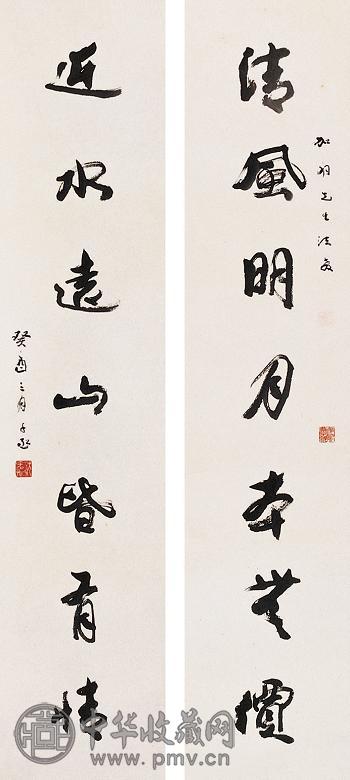 清風明月本無價
近水遠山皆有情
癸酉三月
中华收藏网
www.pmv.cn